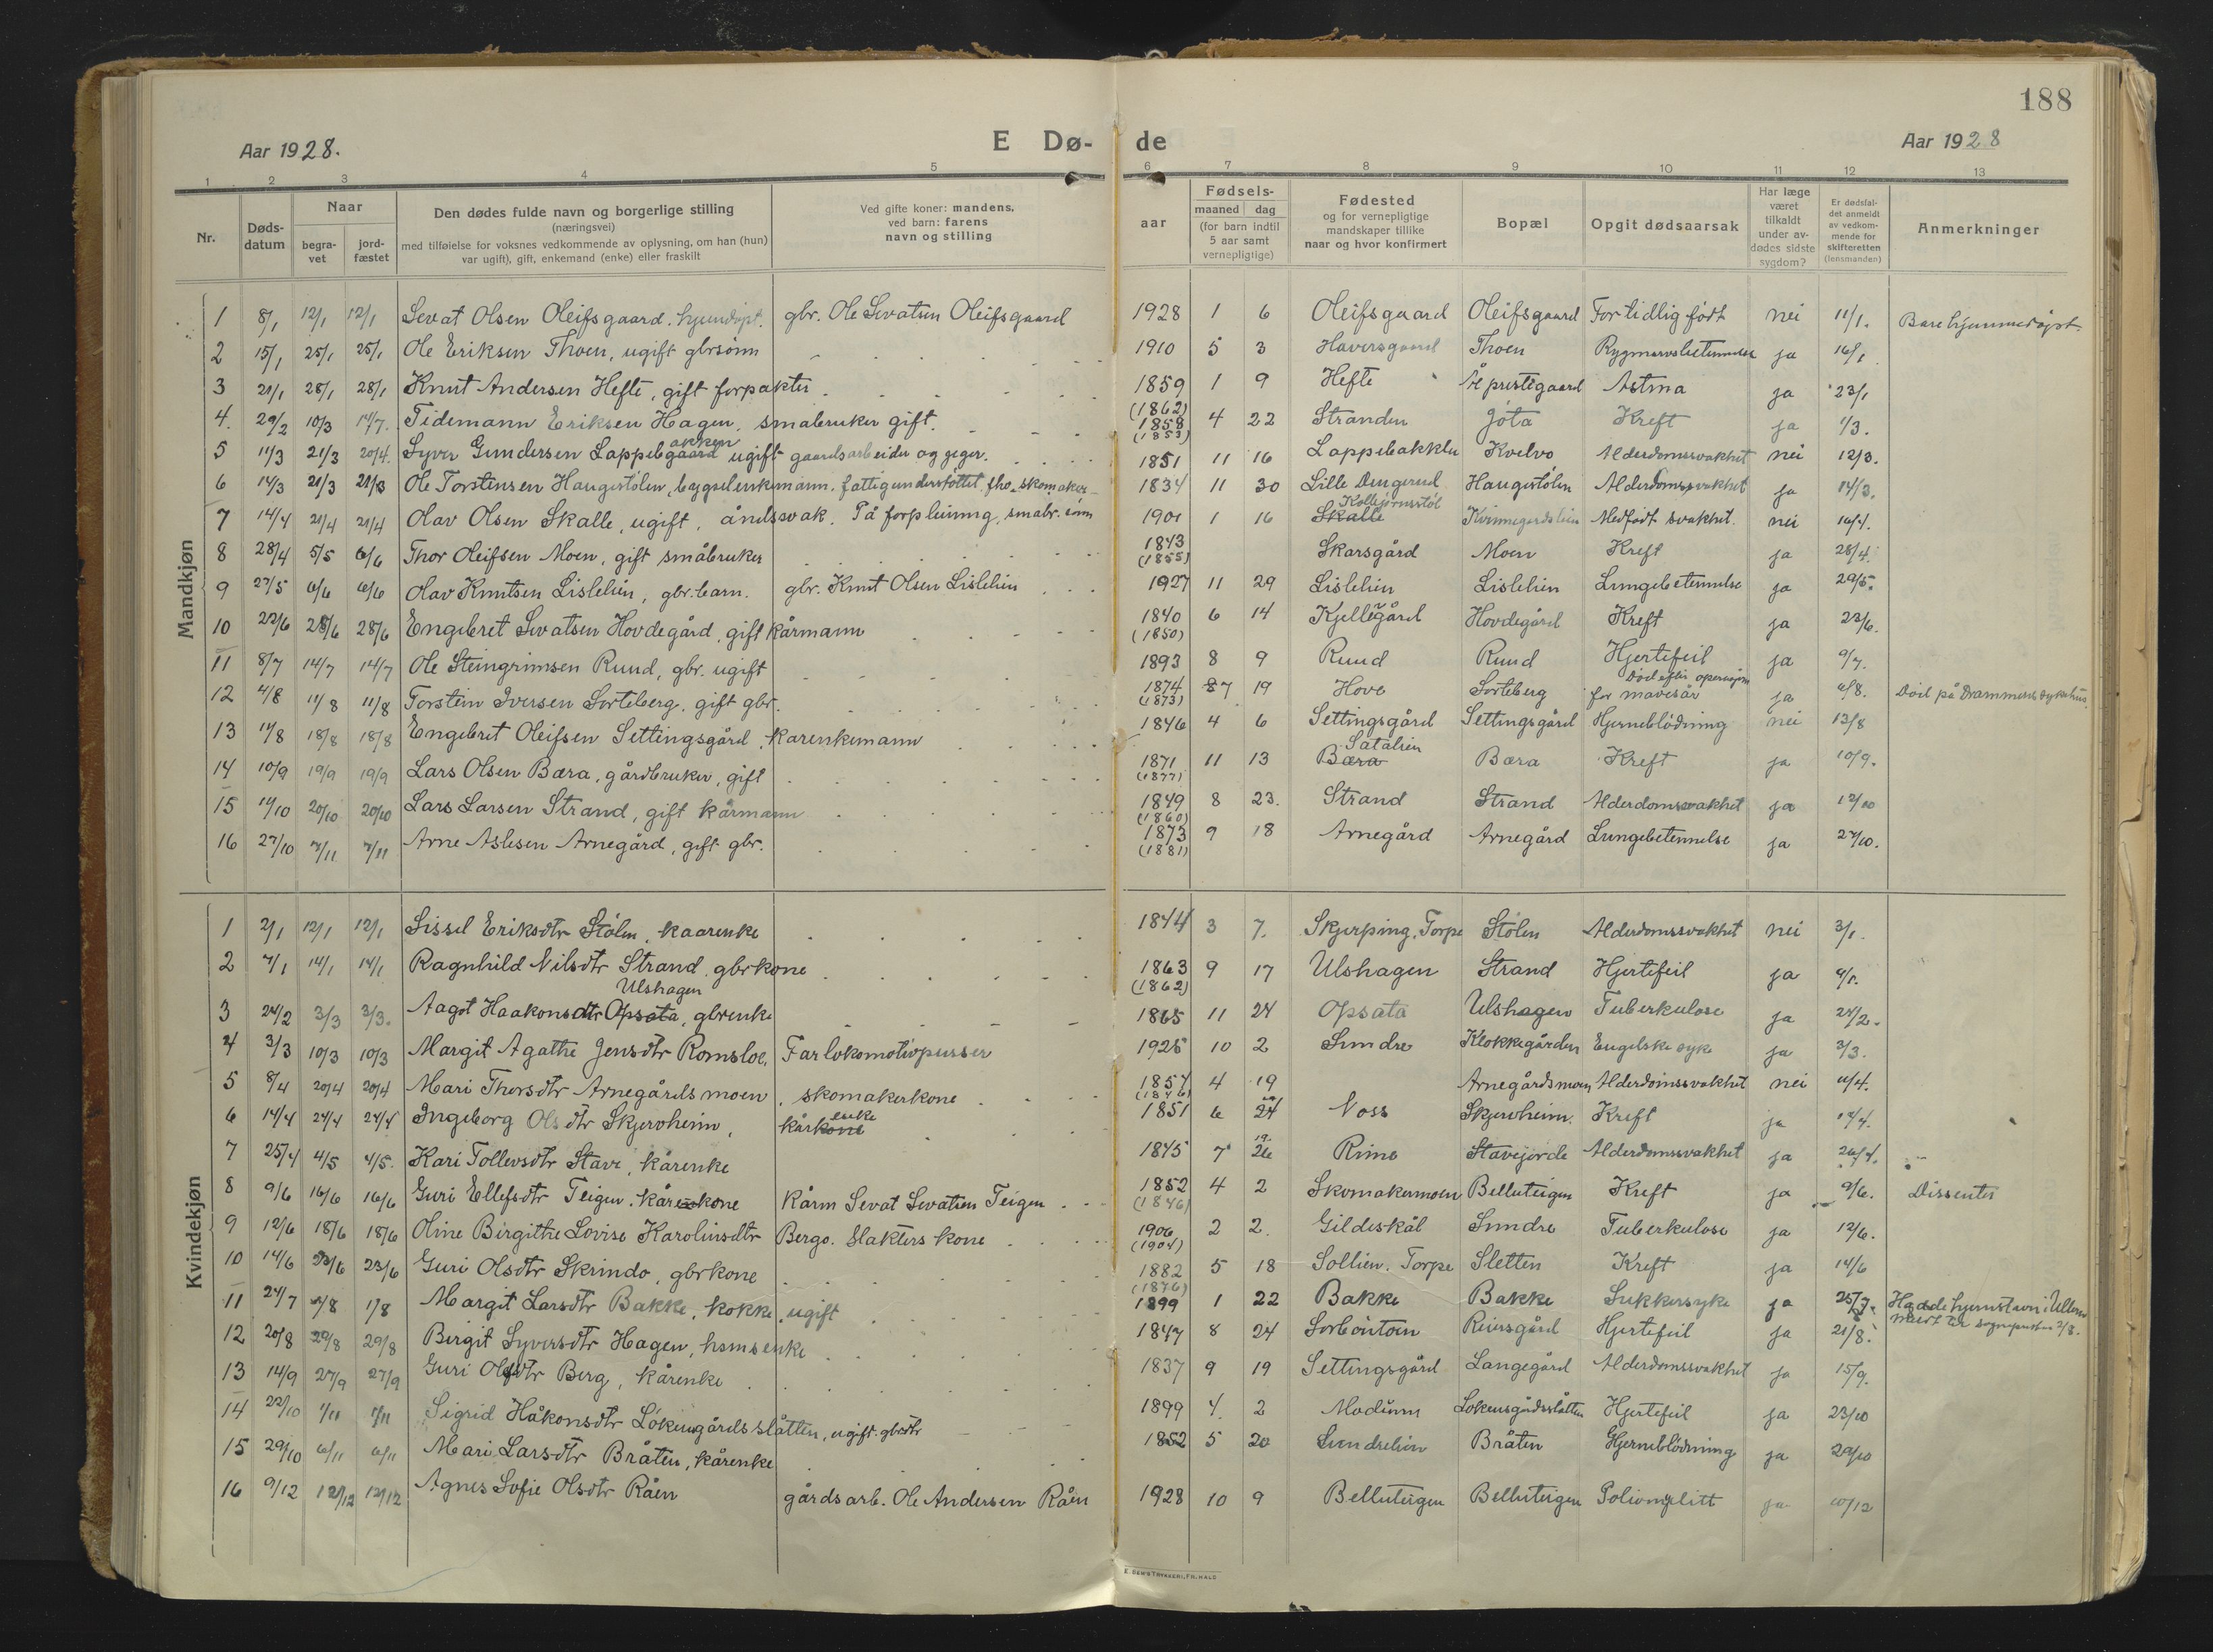 188
Aar 1928.
E Dø-
de
Aar 1928
1 2 3 4 5 6 7 8 9 10 11 12 13
Nr.
Døds-
datum
Naar
begra-
vet
jord-
fæstet
Den dødes fulde navn og borgerlige stilling
(næringsvei)
med tilføielse for voksnes vedkommende av oplysning, om han (hun)
var ugift), gift, enkemand (enke) eller fraskilt
Ved gifte koner: mandens,
ved barn: farens
navn og stilling
aar
Fødsels-
maaned dag
(for barn indtil
5 aar samt
vernepligtige)
Fødested
og for vernepligtige
mandskaper tillike
naar og hvor konfirmert
Bopæl
Opgit dødsaarsak
Har læge
været
tilkaldt
under av-
dødes sidste
sygdom?
Er dødsfal-
det anmeldt
av vedkom-
mende for
skifteretten
(lensmanden)
Anmerkninger
Mandkjøn
1 8/1 12/1 12/1 Sevat Olsen Oleifsgaard. hjemdøpt. gbr. Ole Sevatsen Oleifsgaard 1928 1 6 Oleifsgaard Oleifsgaard For tidlig født nei 11/1. Bare hjemmedøpt.
2 15/1 25/1 25/1 Ole Eriksen Thoen, ugift gbrsønn 1910 5 3 Haversgaard Thoen Rygmarvsbetennelse ja 16/1
3 21/1 28/1 28/1 Knut Andersen Hefte, gift forpakter 1859 (1862) 1 9 Hefte Ål prestegaard Astma ja 23/1
4. 29/2 10/3 14/7. Tidemann Eriksen Hagen, småbruker gift. 1858 (1853) 4 22 Stranden Jota Kreft ja 1/3.
5 11/3 21/3 20/4. Syver Gundersen Lappebgaard akken ugift gaardsarbeider og geger. 1851 11 16 Lappebakken Kvelvo Alderdomssvakhet nei 12/3.
6 14/3 21/3 21/3 Ole Torstensen Haugestølen, bygselenkemann, fattigunderstøttet, fho. skomaker 1834 11 30 Lille Dengerud Haugestølen Alderdomssvakhet ja 14/3.
7 14/4 21/4 21/4 Olav Olsen Skalle, ugift, åndssvak. På forpleining, småbr. sønn 1901 1 16 Skalle Kollejornsstøl Kvinnegardslien Medfødt svakhet. nei 16/4.
8 28/4 5/5 6/6 Thor Oleifsen Moen, gift småbruker 1843 (1855) Skarsgård Moen Kreft ja 28/4.
9 27/5 6/6 6/6 Olav Knutsen Lislelien, gbr. barn. gbr. Knut Olsen Lislelien 1927 11 29 Lislelien Lislelien Lungebetennelse ja 29/5.
10 22/6 28/6 28/6 Engebret Sevatsen Hovdegård, gift kårmann 1840 (1850) 6 14 Kjellegård Hovdegård Kreft ja 23/6.
11 8/7 14/7 14/7 Ole Steingrimsen Ruud, gbr. ugift 1893 8 9 Ruud Ruud Hjertefeil ja 9/7.
12 4/8 11/8 11/8 Torstein Iversen Sorteberg, gift gbr. 1874 (1873) 7 19 Hove Sorteberg Død efter operasjon for mavesår ja 6/8. Død på Drammens sykehus.
13 11/8 18/8 18/8 Engebret Oleifsen Settingsgård, kårenkemann 1846 4 6 Settingsgård Settingsgård Hjerneblødning nei 13/8
14 10/9 19/9 19/9 Lars Olsen Bæra, gårdbruker, gift 1871 (1877) 11 13 Bæra Satalien Bæra Kreft ja 10/9.
15 11/10 20/10 20/10 Lars Larsen Strand, gift kårmann 1849 (1860) 8 23. Strand Strand Alderdomssvakhet ja 12/10
16 27/10 7/11 7/11 Arne Aslesen Arnegård, gift gbr. 1873 (1881) 9 18 Arnegård Arnegård Lungebetennelse ja 27/10.
Kvindekjøn
1 2/1 12/1 12/1 Sissel Eriksdtr Stølen, kaarenke 1844 3 7. Skjerping, Torpe Stølen Alderdomssvakhet nei 3/1.
2 7/1 14/1 14/1 Ragnhild Nilsdtr Strand, gbrkone 1863 (1862) 9 17 Ulshagen Strand Hjertefeil ja 9/1.
3 24/2 3/3 3/3. Aagot Haakonsdtr Opsata Ulshagen, gbrenke 1865 11 24 Opsata Ulshagen Tuberkulose ja 24/2.
4 3/3 10/3 10/3 Margit Agathe Jensdtr Romsloe. Far lokomotivpusser 1925 10 2 Sundre Klokkegården Engelske syke ja 3/3.
5 8/4 20/4 20/4 Mari Thorsdtr Arnegårdsmoen, skomakerkone 1857 (1846) 4 19 Arnegårdsmoen Alderdomssvakhet nei 11/4.
6 14/4 24/4 24/4 Ingeborg Olsdtr Skjervheim, kårkone enke 1851 6 24 Voss Skjervheim. Kreft ja 17/4.
7 25/4 4/5 4/5. Kari Tollevsdtr Stave, kårenke 1845 7 26 19. Rime Stavejorde Alderdomssvakhet ja 26/4.
8 9/6 16/6 16/6 Guri Ellefsdtr Teigen, kårkone Kårm Sevat Sevatsen Teigen 1852 (1846) 4 2 Skomakermoen Belluteigen Kreft ja 9/6. Dissenter
9 12/6 18/6 18/6 Oline Birgithe Lovise Karolinsdtr Bergo. Slakters kone 1906 (1904) 2 2. Gildeskål Sundre Tuberkulose ja 12/6.
10 14/6 23/6 23/6 Guri Olsdtr Skrindo, gbrkone 1882 (1876) 5 18 Sollien. Torpe Sletten Kreft ja 14/6
11 24/7 1/8 1/8 Margit Larsdtr Bakke, kokke, ugift 1899 1 22 Bakke Bakke Sukkersyke ja 25/7. Hadde hjemstavn i Ullern meldt til sogneprest 2/8.
12 20/8 29/8 29/8 Birgit Syversdtr Hagen, husmsenke 1847 8 24 Sorbøntoen Reiersgård Hjertefeil ja 21/8.
13 14/9 27/9 27/9 Guri Olsdtr Berg, kårenke 1837 9 19 Settingsgård Langegård Alderdomssvakhet ja 15/9.
14 22/10 1/11 1/11 Sigrid Håkonsdtr Løkensgårdsslåtten, ugift. gbrdtr 1899 4. 2 Modinn Løkensgårdsslåtten Hjertefeil ja 23/10
15 29/10 6/11 6/11 Mari Larsdtr Bråten, kårenke 1852 5 20 Sundrelien Bråten Hjerneblødning ja 29/10
16 9/12 12/12 12/12 Agnes Sofie Olsdtr Råen gårdsarb. Ole Andersen Råen 1928 10 9 Belluteigen Belluteigen Poliomyelitt ja 10/12
E. SEM'S TRYKKERI, FR.HALD